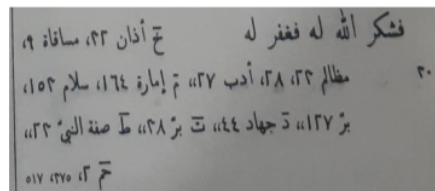 فشكر الله له فغفر له خ أذان ٣٢، مساقاة ٩،
مظالم ٢٣، ٢٨، أدب ٢٧،، م إمارة ١٦٤، سلام ١٥٣،
٢٠
برّ ١٢٧،، د جهاد ٤٤،، ت برّ ٣٨،، ط صفة النبيّ ٢٣،،
حم ٢، ٣٧٥، ٥١٧